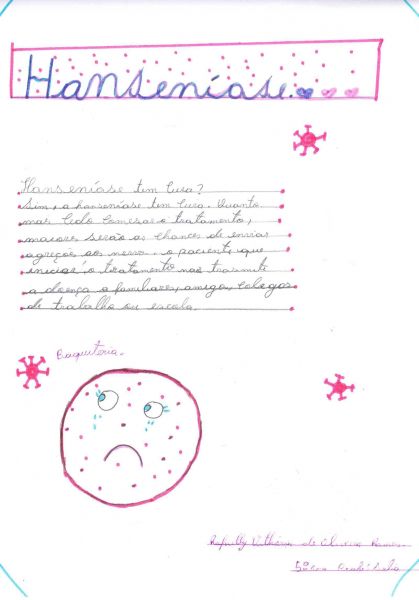 Hanseníase...
Hanseníase tem Cura?
Sim, a hanseníase tem Cura. Quanto
mas Cedo Comesar o tratamento,
maiores serão as chances de envias
agreções aos nervo. o paciente que
iniciar o tratamento não trasmiti
a doença a familiares, amigo, Colegas
de trabalho ou escola.
Baquiteria.
de Oliveira